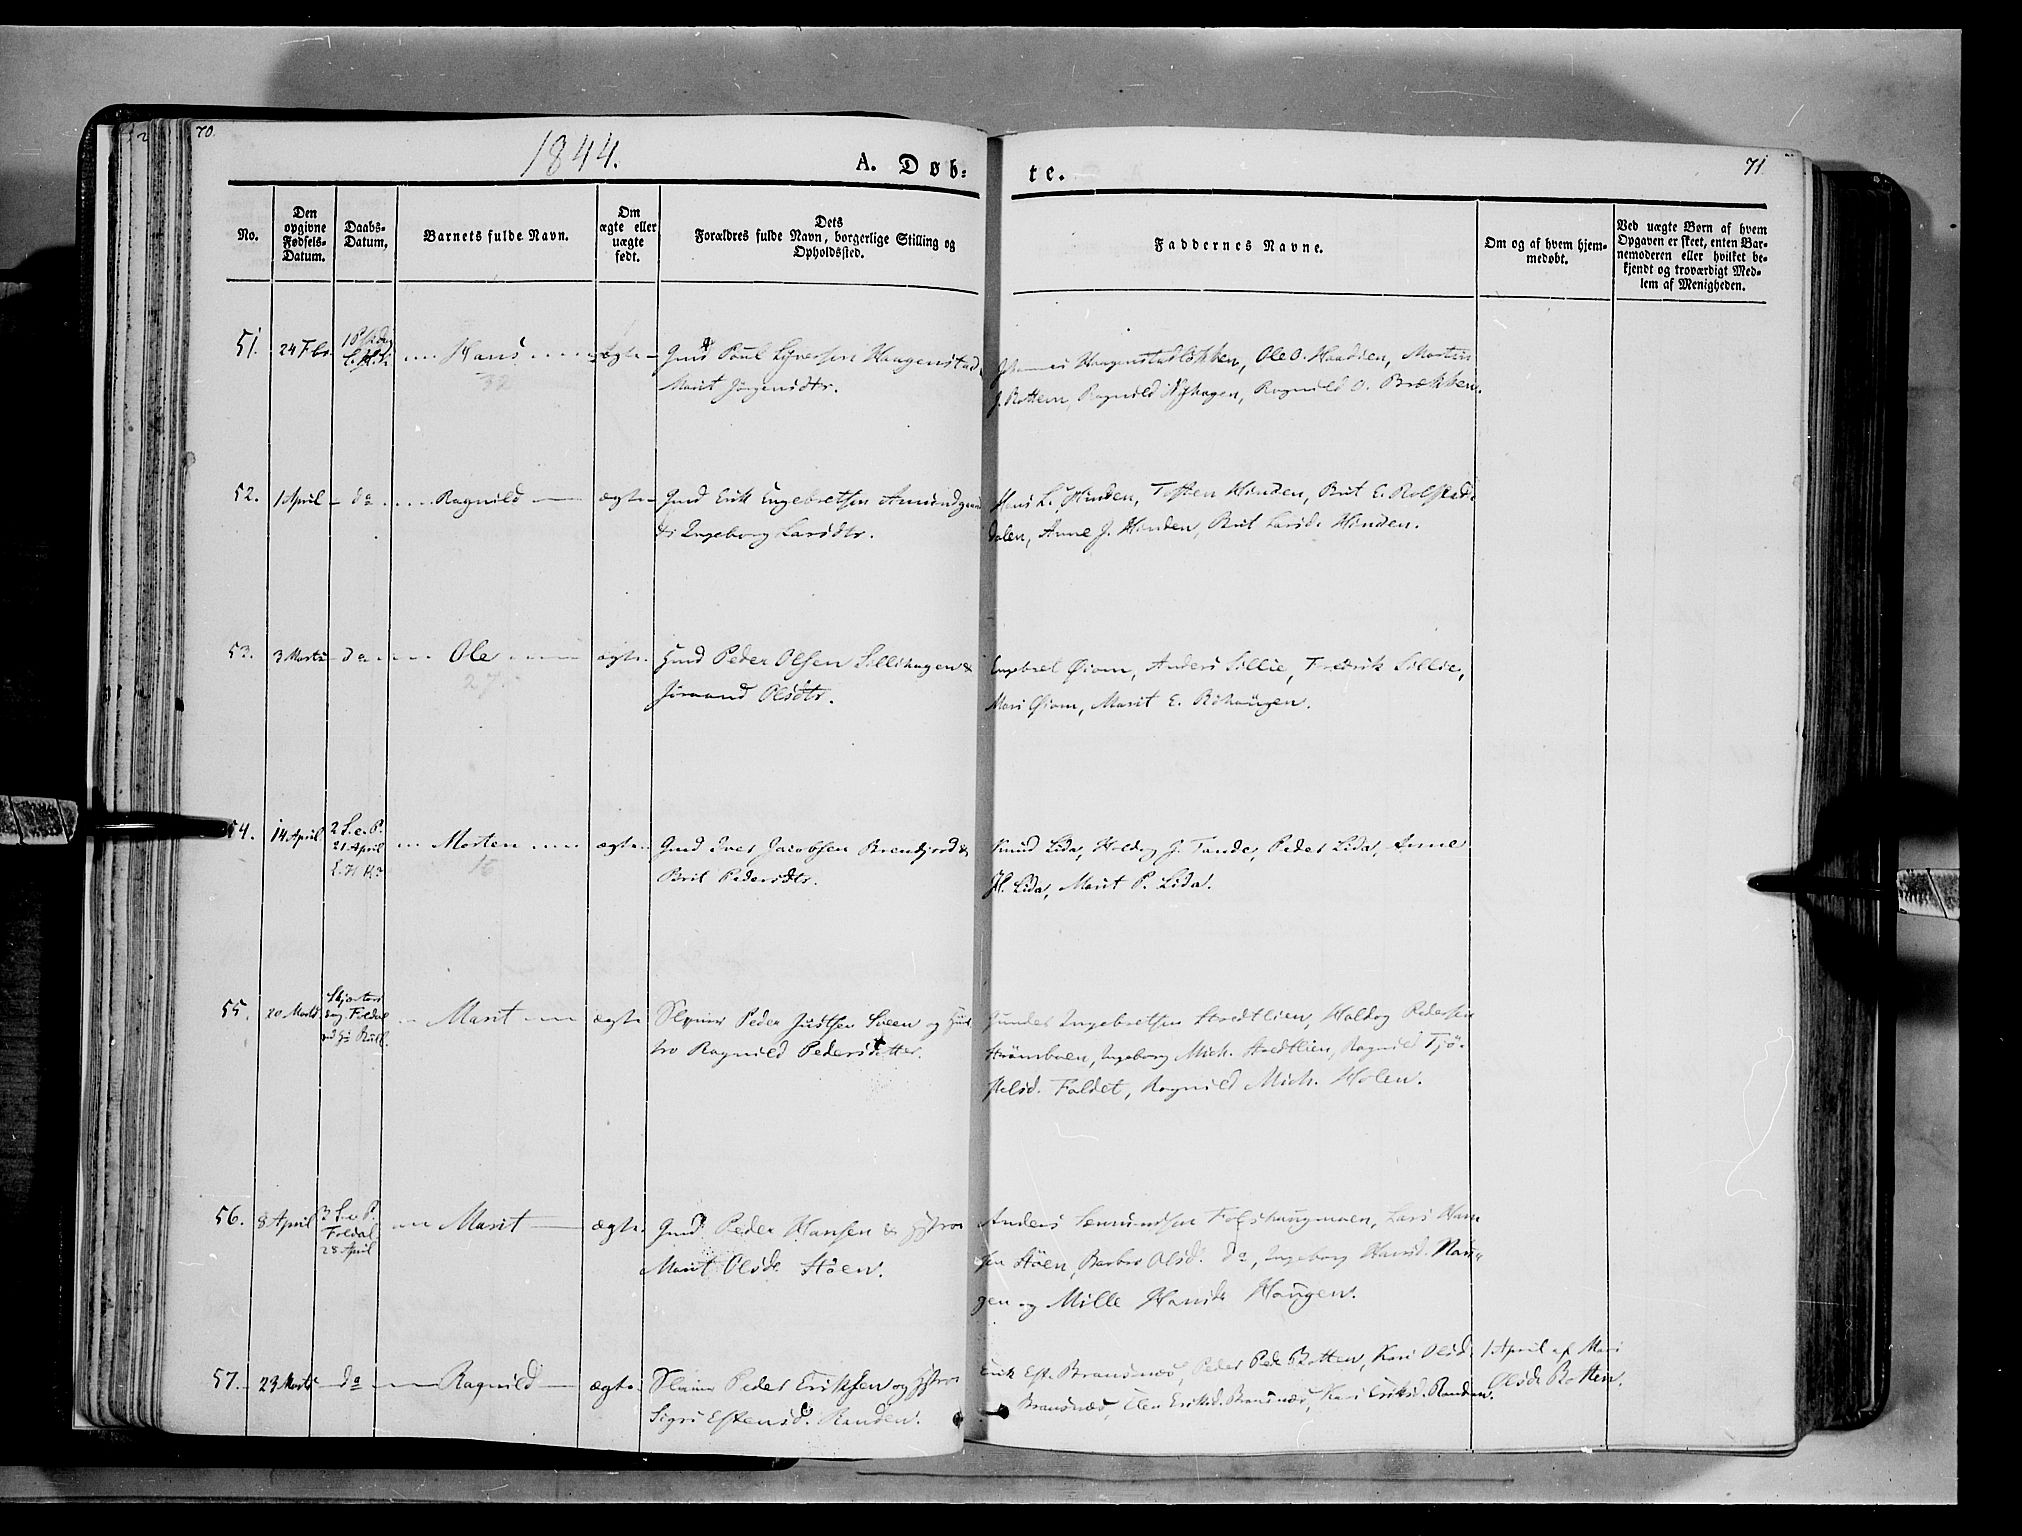 70.
1844.
A. Døb-
te.
71
No.
Den
opgivne
Fødsels-
Datum.
Daabs-
Datum,
Barnets fulde Navn.
Om
ægte eller
uægte
født.
Dets
Forældres fulde Navn, borgerlige Stilling og
Opholdssted.
Faddernes Navne.
Om og af hvem hjem-
medøbt.
Ved uægte Børn af hvem
Opgaven er skeet, enten Bar-
nemoderen eller hvilket be-
kjendt og troværdigt Med-
lem af Menigheden.
51. 24 Fbr. Hans ægte Gmd Poul Syversen Haagenstad
Marit Jörgensdtr.
32
Haagenstadlökken, Ole O. Haadien, Morten
J. Rottem, Ragnild Nyhagen, Ragnild O. Brækken.
52. 1 April do Ragnild ægte Gmd Erik Engebretsen
Ingeborg Larsdtr.
Hans L. Hinden, Tosten Hinden, Brit E. Rolfstad-
dalen, Anne J. Hinden, Brit Larsdr Hinden.
53. 3 Marts do Ole ægte Gmd Peder Olsen Sillihagen &
Jörand Olsdtr.
27.
Engebret Öiom, Anders Sillie, Fredrik Sillie,
Mari Öiom, Marit E. Röhaugen.
54. 14 April 2 S. e. P.
21 April
Morten ægte Gmd Iver Jacobsen &
Brit Pedersdtr.
16
Knud Lida, Holdog J. Tande, Peder Lida, Anne
H. Lida, Marit P. Lida.
55. 20 Marts Foldal
Marit ægte Peder Justsen Sveen og Hust-
ro Ragnild Pedersdatter.
Gunder Ingebretsen Stredtlien, Haldog Pedersen
Strömboen, Ingeborg Mich. Stredtlien, Ragnild Tjö-
stelsd. Foldet, Ragnild Mich. Holen.
56. 8 April 3 S. e. P.
Foldal
28 April
Marit ægte Gmd Peder Hansen & Hstro
Marit Olsdr Stöen.
Anders Semundsen Lars Han-
sen Stöen, Barbro Olsd. do, Ingeborg Hansd. Hau-
gen og Mille Hansdr Haugen.
57. 29 Marts do Ragnild ægte Peder Eriksen og Hstro
Sigri Estensd. Randen.
Erik Est. Brandsnæs, Peder Peds. Botten, Kari Olsd.
Brandsnæs, Eriksd. Brandsnæs, Kari Eriksd. Randen.
1 April af Mari
Olsdr Botten.